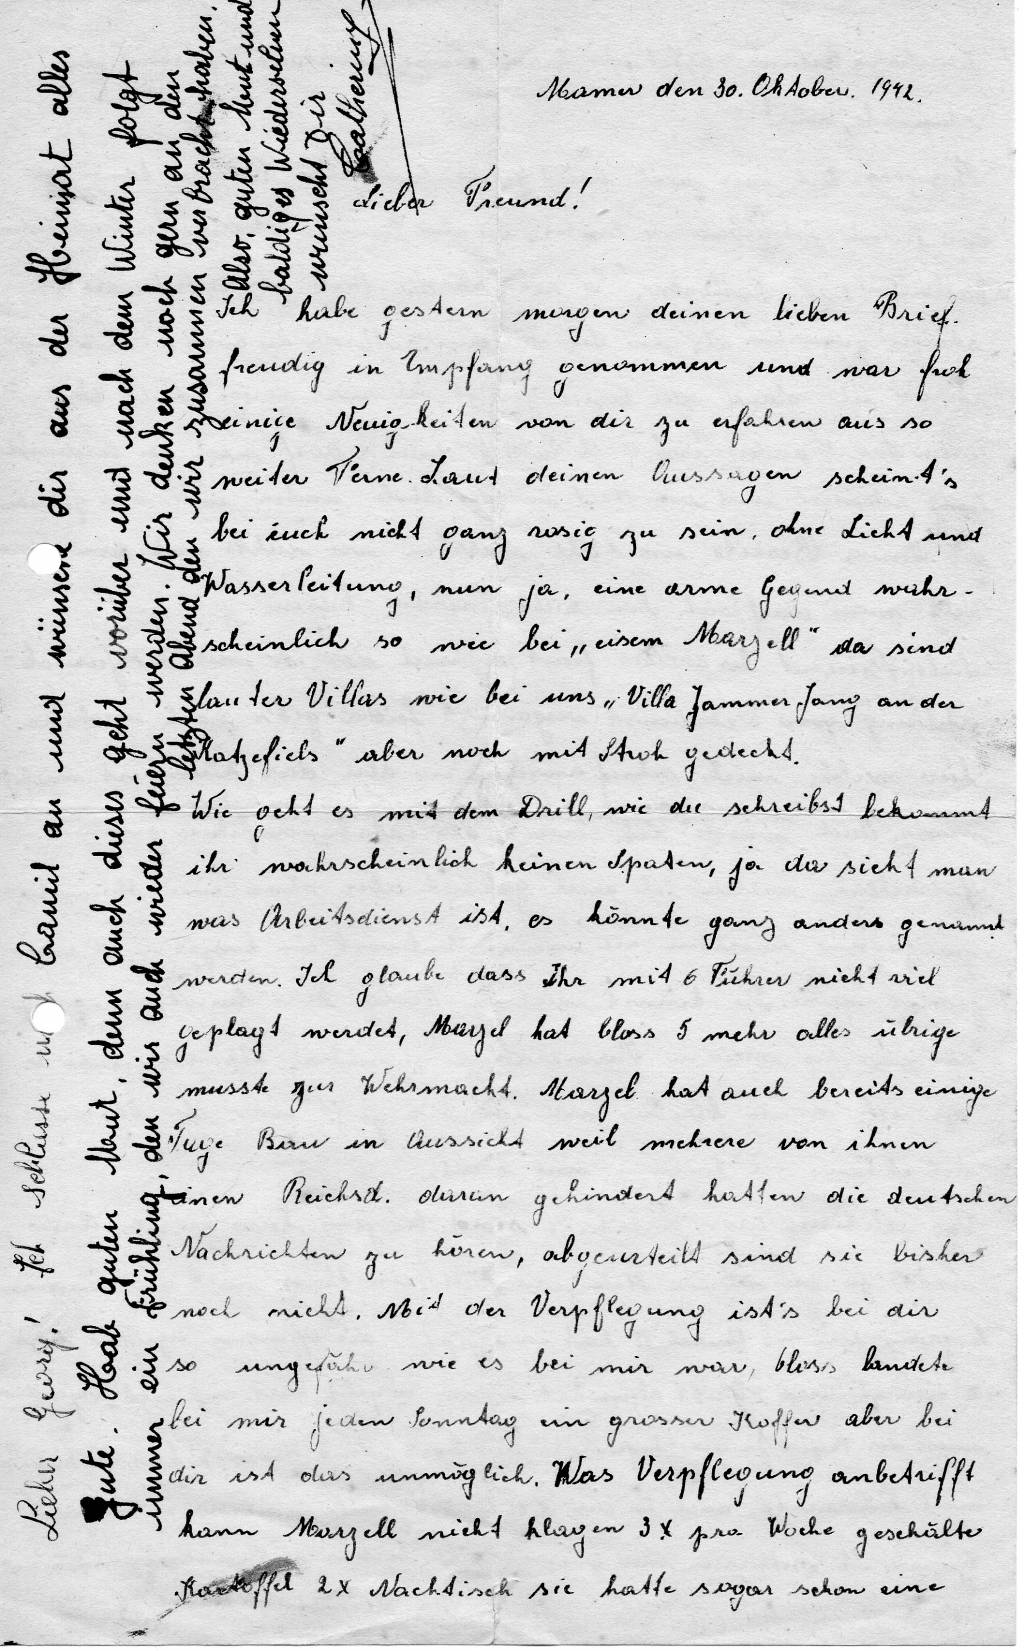 Mamer den 30. Oktober. 1942.
Lieber Freund!
Ich habe gestern morgen deinen lieben Brief.
freudig in Empfang genommen und war froh
einige Neuigkeiten von dir zu erfahren aus so
weiter Ferne. Laut deinen Aussagen scheint's
bei euch nicht ganz rosig zu sein, ohne Licht und
Wasserleitung, nun ja, eine arme Gegend wahr-
scheinlich so wie bei „eisem Marzell" da sind
lauter Villas wie bei uns „Villa Jammer Jang an der
Katzefiels" aber noch mit Stroh gedeckt.
Wie geht es mit dem Drill, wie du schreibst bekommt
ihr wahrscheinlich keinen Spaten, ja da sieht man
was Arbeitsdienst ist, es könnte ganz anders genannt
werden. Ich glaube dass Ihr mit 6 Führer nicht viel
geplagt werdet, Marzel hat bloss 5 mehr alles übrige
musste zur Wehrmacht. Marzel hat auch bereits einige
Tage Bau in Aussicht weil mehrere von ihnen
einen Reichsd. daran gehindert hatten die deutschen
Nachrichten zu hören, abgeurteilt sind sie bisher
noch nicht. Mit der Verpflegung ist's bei dir
so ungefähr wie es bei mir war, bloss landete
bei mir jeden Sonntag ein grosser Koffer aber bei
dir ist das unmöglich. Was Verpflegung anbetrifft
kann Marzell nicht klagen 3 x pro Woche geschälte
Kartoffel 2 x Nachtisch sie hatte sogar schon eine
Lieber Georg! Ich schliesse mich Camil an und wünsche dir aus der Heimat alles
Gute. Hab guten Mut, denn auch dieses geht vorüber und nach dem Winter folgt
immer ein Frühling, den wir auch wieder feiern werden. Wir denken noch gern an den
letzten Abend den wir zusammen verbracht haben.
Also, guten Mut und
baldiges Wiedersehen
wünscht Dir
Catherine